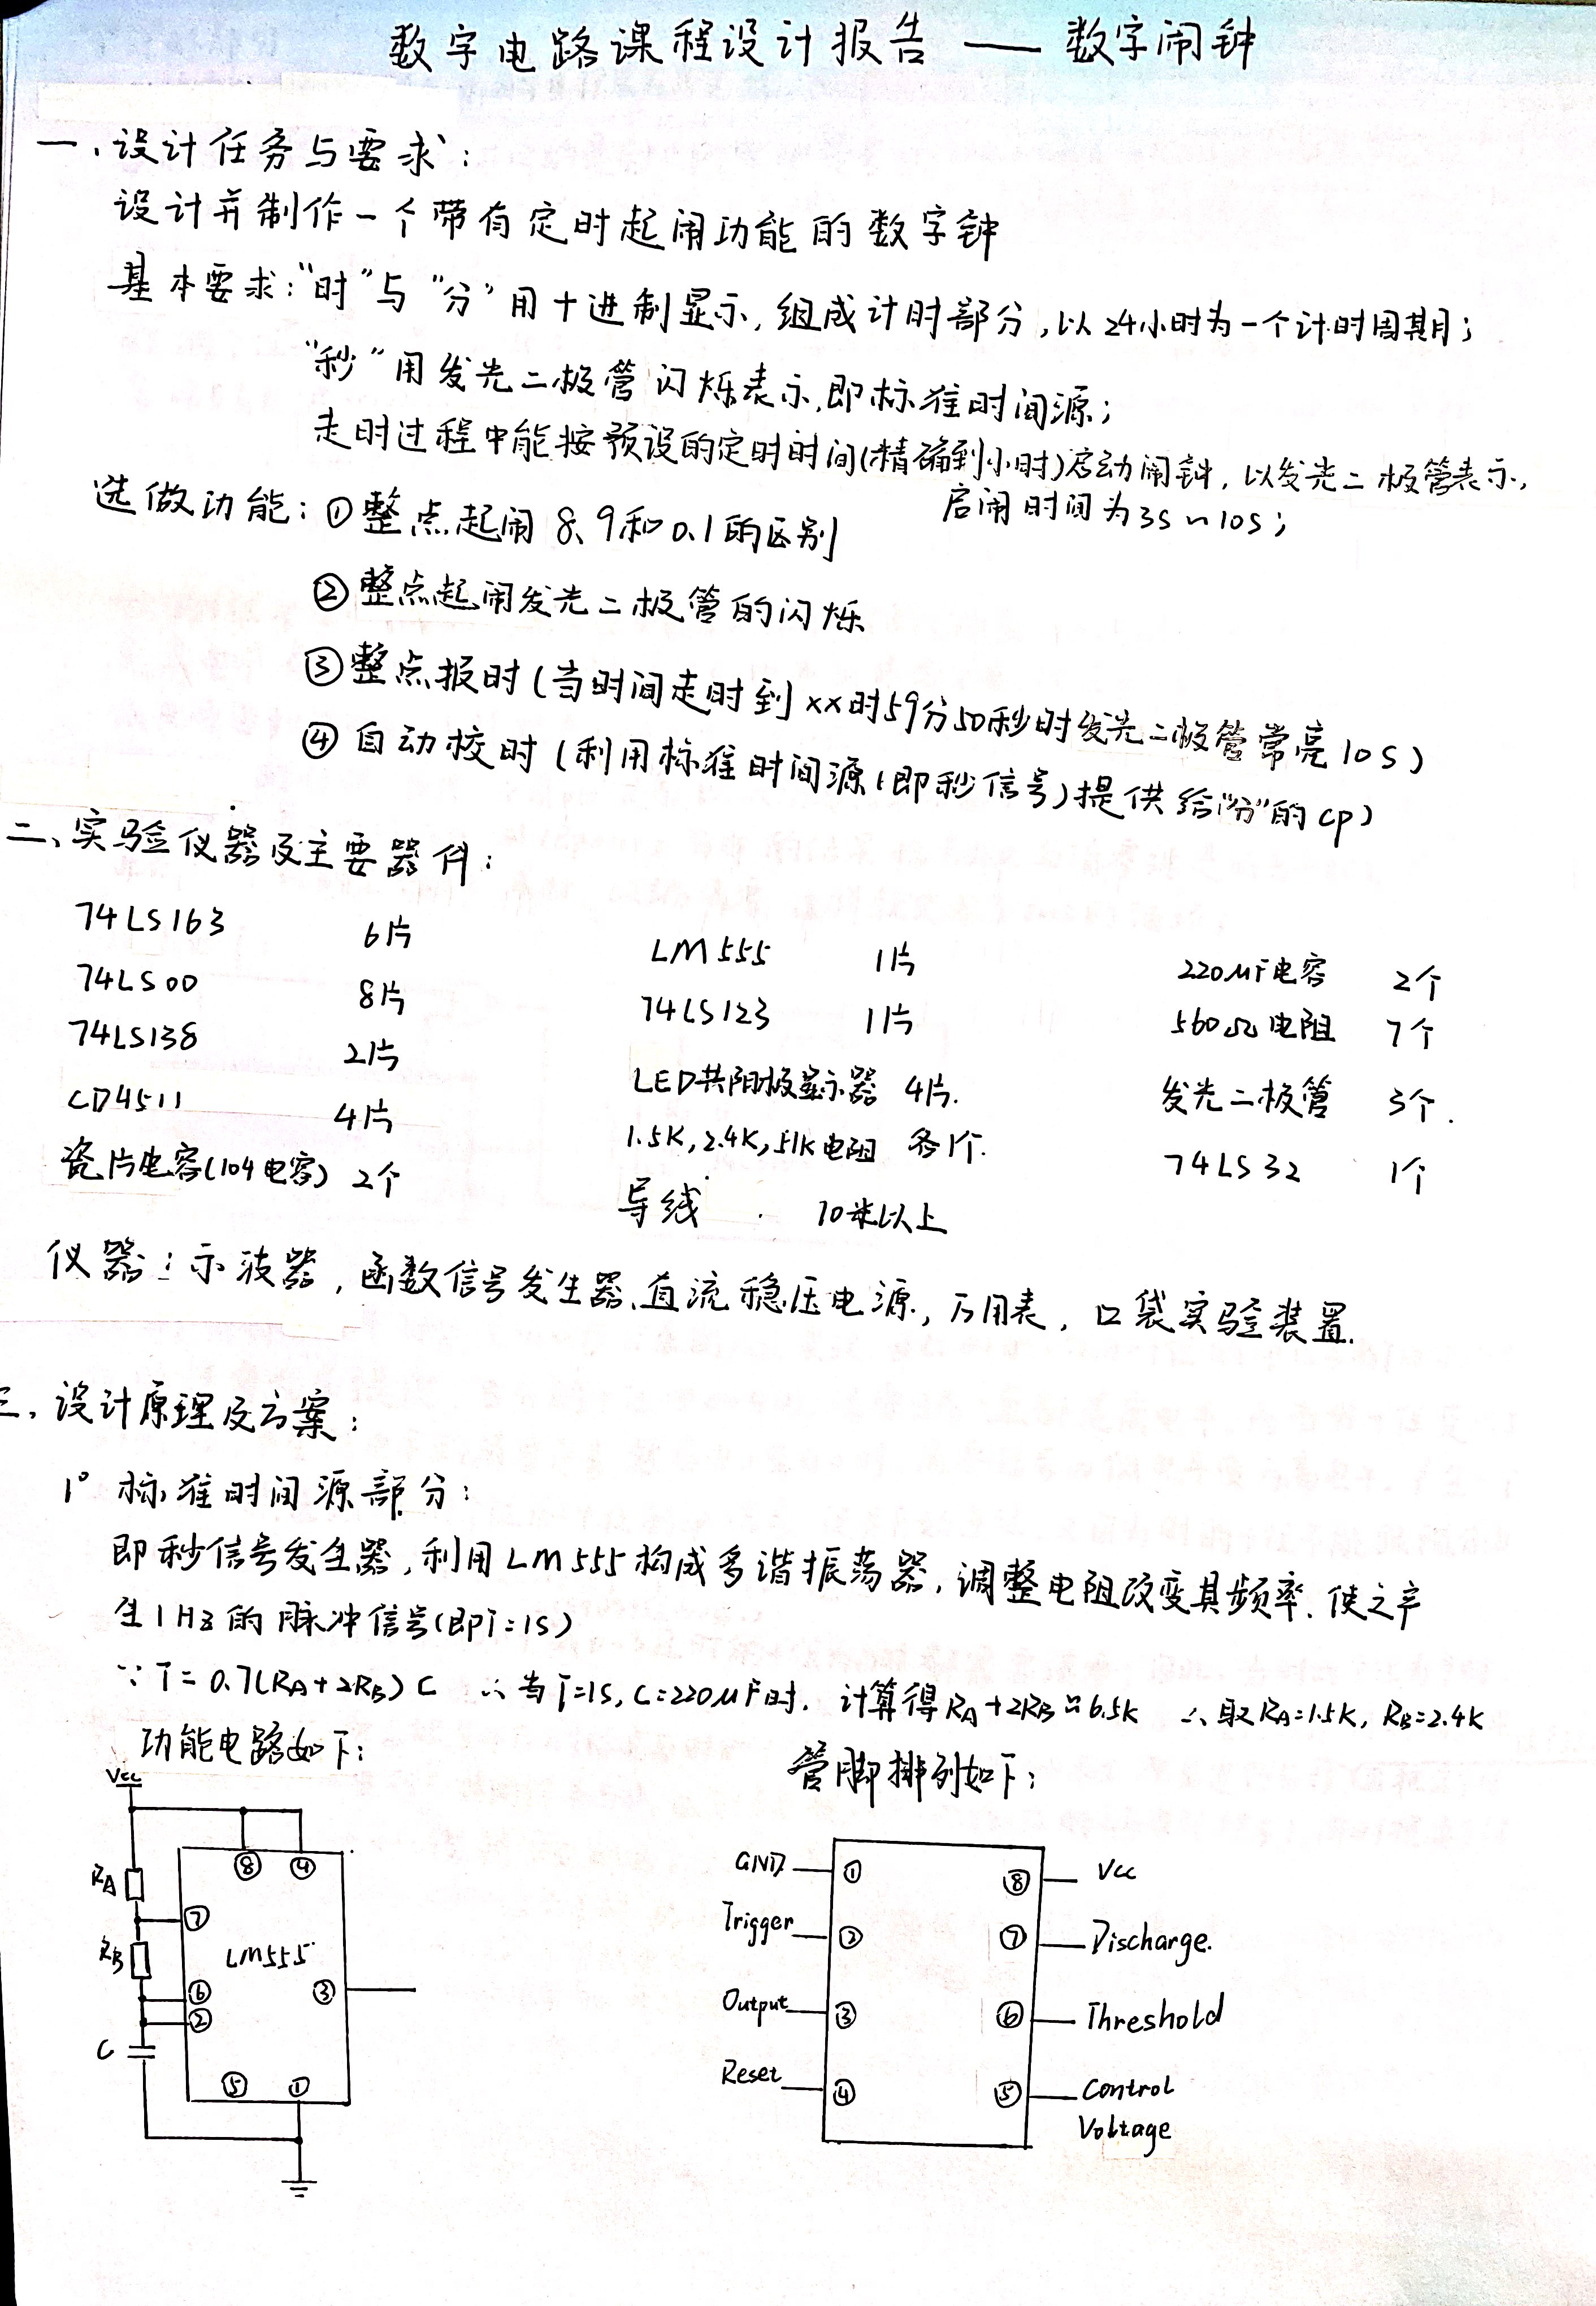 数字电路课程设计报告 —— 数字闹钟
一、设计任务与要求:
设计并制作一个带有定时起闹功能的数字钟
基本要求:"时"与"分"用十进制显示,组成计时部分,以24小时为一个计时周期;
"秒"用发光二极管闪烁表示,即标准时间源;
走时过程中能按预设的定时时间(精确到小时)启动闹钟,以发光二极管表示,
启闹时间为3s~10s;
选做功能:①整点起闹8、9和0.1的区别
②整点起闹发光二极管的闪烁
③整点报时(当时间走时到xx时59分50秒时发光二极管常亮10s)
④自动校时(利用标准时间源(即秒信号)提供给"分"的cp)
二、实验仪器及主要器件:
74LS163 6片 LM555 1片 220μF电容 2个
74LS00 8片 74LS123 1片 560Ω电阻 7个
74LS138 2片 LED共阳极显示器 4片. 发光二极管 3个.
CD4511 4片 1.5K,2.4K,51K电阻 各1个. 74LS32 1个
瓷片电容(104电容) 2个 导线 10米以上
仪器:示波器,函数信号发生器、直流稳压电源,万用表,口袋实验装置.
三、设计原理及方案:
1° 标准时间源部分:
即秒信号发生器,利用LM555构成多谐振荡器,调整电阻改变其频率.使之产
生1Hz的脉冲信号(即T=1s)
∵T=0.7(RA+2RB)C ∴当T=1s,C=220μF时.计算得RA+2RB≈6.5K ∴取RA=1.5K,RB=2.4K
功能电路如下: 管脚排列如下:
Vcc
RA
RB
C
⑧ ④
⑦
LM555
⑥ ③
②
⑤ ①
GND ① ⑧ Vcc
Trigger ② ⑦ Discharge.
Output ③ ⑥ Threshold
Reset ④ ⑤ Control
Voltage